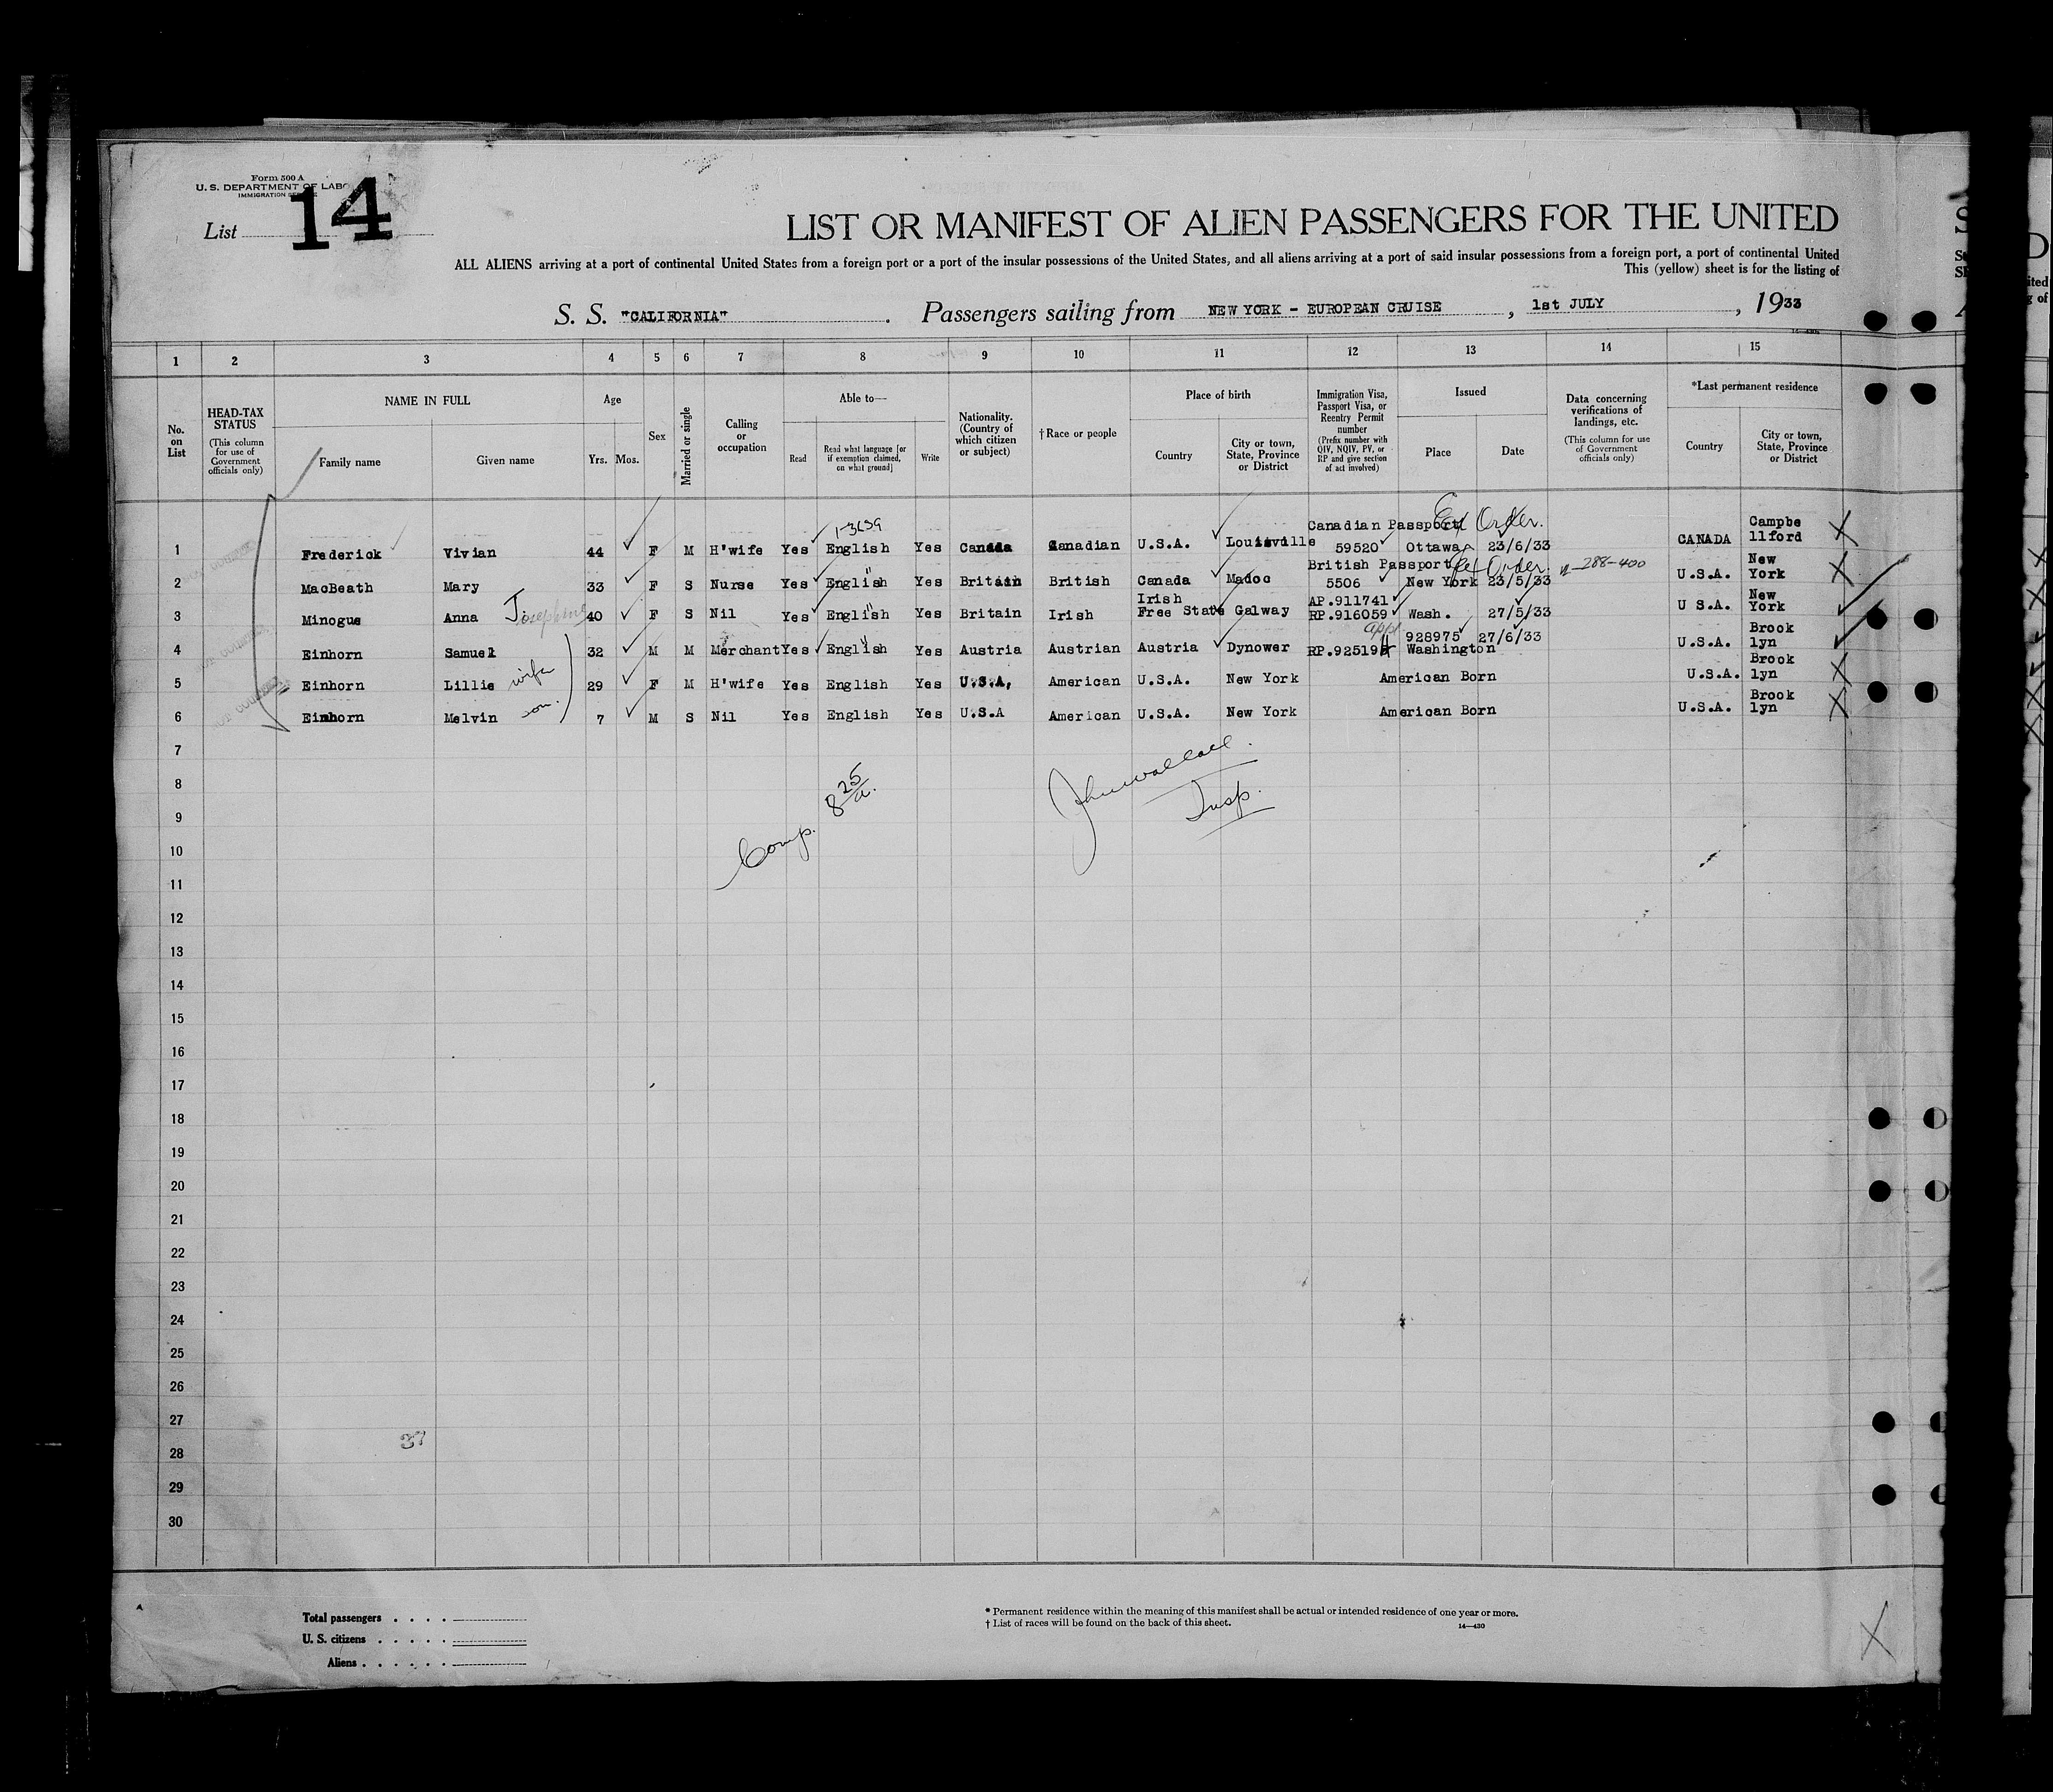 Form 500 A
U. S. DEPARTMENT OF LABO
IMMIGRATION SERVICE
List 14
LIST OR MANIFEST OF ALIEN PASSENGERS FOR THE UNITED
ALL ALIENS arriving at a port of continental United States from a foreign port or a port of the insular possessions of the United States, and all aliens arriving at a port of said insular possessions from a foreign port, a port of continental United
This (yellow) sheet is for the listing of
S. S. "CALIFORNIA" . Passengers sailing from NEW YORK - EUROPEAN CRUISE , 1st JULY , 1933
1 2 3 4 5 6 7 8 9 10 11 12 13 14 15
No. on List
HEAD-TAX STATUS (This column for use of Government officials only)
NAME IN FULL Family name Given name
Age Yrs. Mos.
Sex
Married or single
Calling or occupation
Able to— Read Read what language [or if exemption claimed, on what ground] Write
Nationality. (Country of which citizen or subject)
†Race or people
Place of birth Country City or town, State, Province or District
Immigration Visa, Passport Visa, or Reentry Permit number (Prefix number with QIV, NQIV, PV, or RP and give section of act involved)
Issued Place Date
Data concerning verifications of landings, etc. (This column for use of Government officials only)
*Last permanent residence Country City or town, State, Province or District
1-3659 Canadian Passport Ex Order. Campbe
1 Frederick Vivian 44 F M H'wife Yes English Yes Canada Canadian U.S.A. Louisville 59520 Ottawa 23/6/33 CANADA llford
British Passport Ex Order. 288-400 New
2 MacBeath Mary 33 F S Nurse Yes English Yes Britain British Canada Madoc 5506 New York 23/5/33 U.S.A. York
Irish AP.911741 New
3 Minogue Anna Josephine 40 F S Nil Yes English Yes Britain Irish Free State Galway RP.916059 Wash. 27/5/33 U S.A. York
app 928975 27/6/33 Brook
4 Einhorn Samuel 32 M M Merchant Yes English Yes Austria Austrian Austria Dynower RP.92519 Washington U.S.A. lyn
Brook
5 Einhorn Lillie wife 29 F M H'wife Yes English Yes U.S.A. American U.S.A. New York American Born U.S.A. lyn
Brook
6 Einhorn Melvin son. 7 M S Nil Yes English Yes U.S.A American U.S.A. New York American Born U.S.A. lyn
7
8
9
10
11
12
13
14
15
16
17
18
19
20
21
22
23
24
25
26
27
28
29
30
Comp. 8 25/a.
John Wallace.
Insp.
37
Total passengers . . . .
U. S. citizens . . . . .
Aliens . . . . . .
* Permanent residence within the meaning of this manifest shall be actual or intended residence of one year or more.
† List of races will be found on the back of this sheet.
14—430